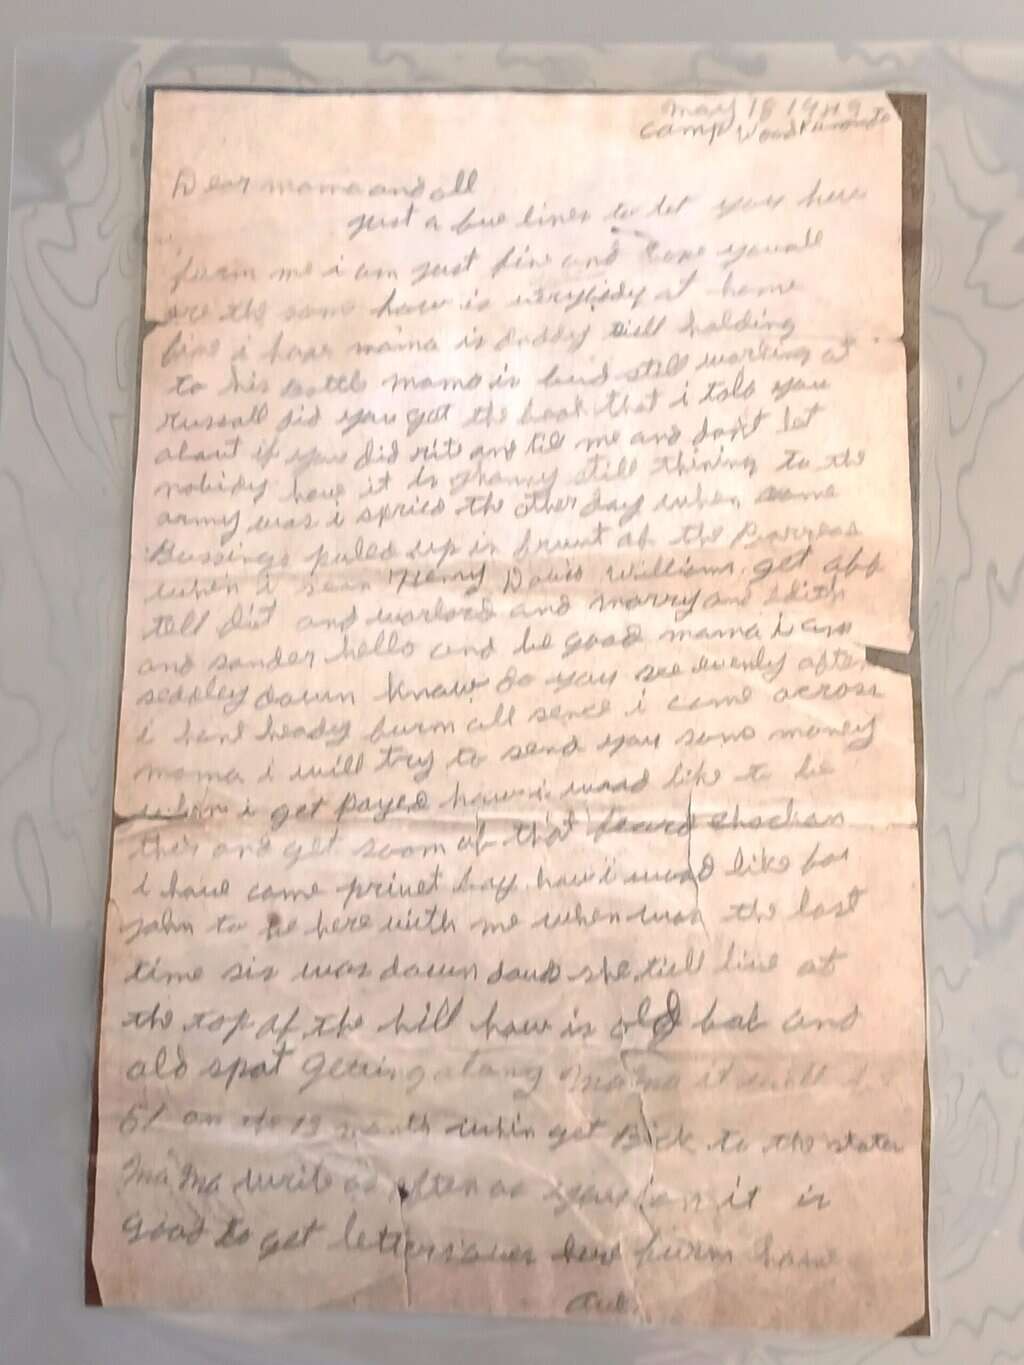 may 18 1949
camp Wood
Dear mama and all
just a fue lines to let you here
furm me i am just fine and hope youall
are the same how is everybidy at home
fine i hope mama is daddy still holding
to his bottle mama is bud still working at
russell did you get the book that i told you
about if you did rite and till me and don't let
nobidy have it is still thining to the
army was i spried the other day when some
up in frunt of the
when i sean Henry Davis Williams get off
tell dit and and marry and Edith
and sander hello and be good mama i am
down know do you see evenly after
i hant heady furm all sence i came across
mama i will try to send you some money
when i get payed how i woad like to be
ther and get soom of that
i have come privet bay how i woad like for
john to be here with me when was the last
time sis was down dous she till live at
the top of the hill how is old bob and
old spot getting along mama it will be
51 or 13 month when get Back to the states
mama write as often as you can it is
good to get letters over here furm home